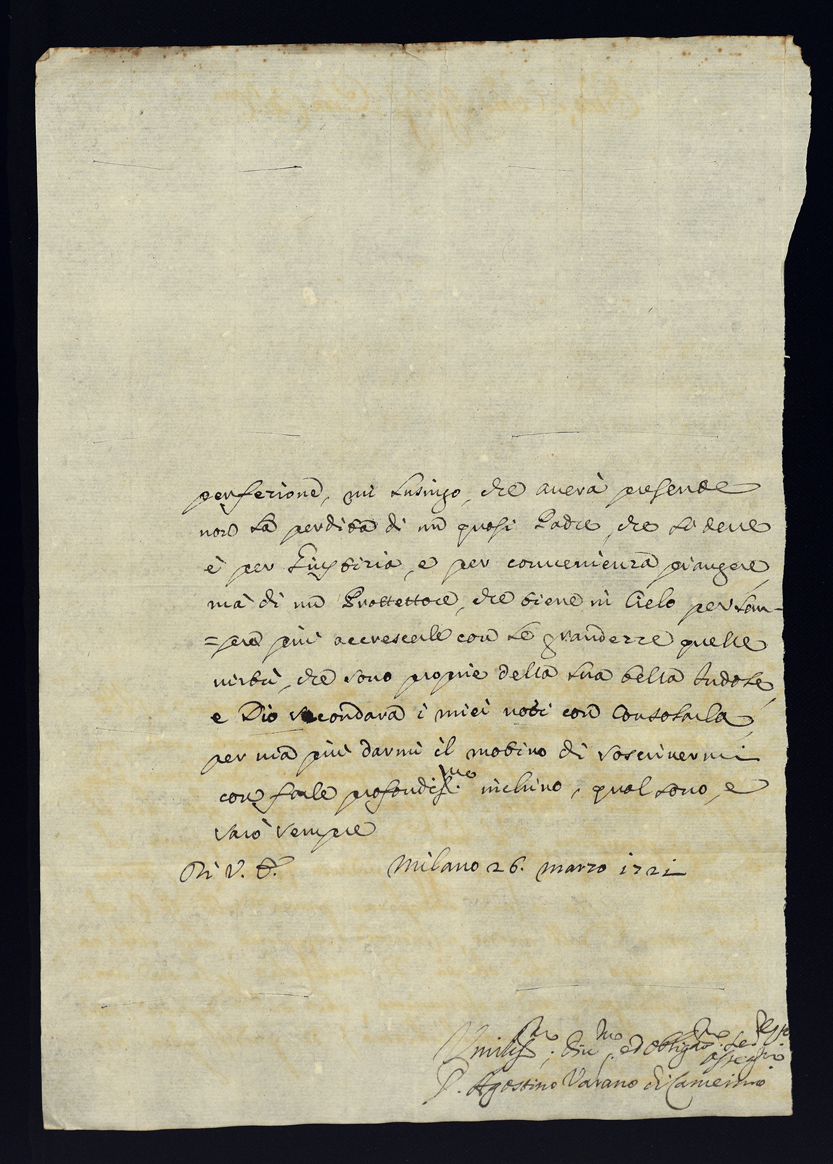 perfezione, mi lusingo, che averà presente
non la perdita di un quasi Padre, che si deve
è per Giustizia, e per convenienza piangere,
mà di un Prottettore, che tiene in Cielo per sem=
=pre più accrescerle con le grandezze quelle
virtù, che sono proprie della sua bella Indole,
e Dio secondarà i miei voti con Consolarla,
per via più darmi il motivo di soscrivermi
con farle profondiss.mo inchino, qual sono, e
sarò sempre
Di V. E. Milano 26. marzo 1721
Umiliss.mo, div.mo, ed obligat.mo
P. Agostino Varano di Camerino